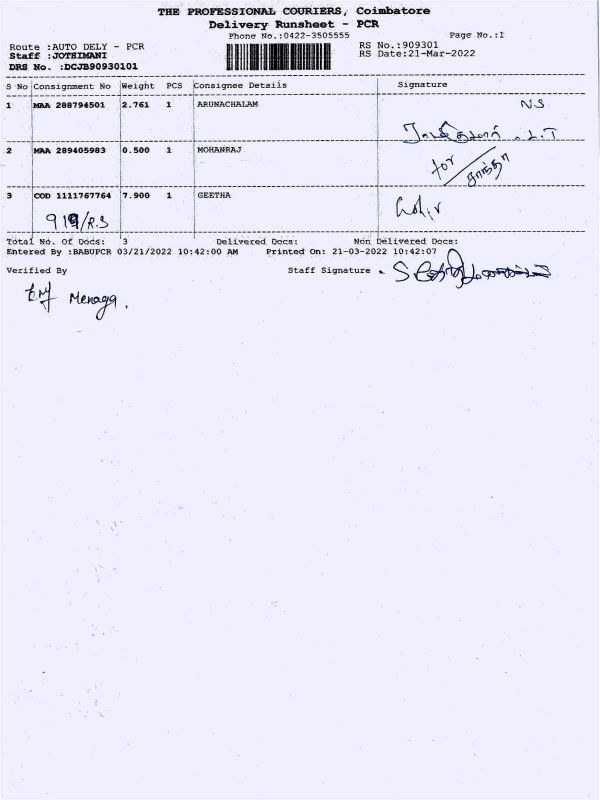 THE PROFESSIONAL COURIERS, Coimbatore
Delivery Runsheet - PCR
Phone No.:0422-3505555 Page No.:1
Route :AUTO DELY - PCR RS No.:909301
Staff :JOTHIMANI RS Date:21-Mar-2022
DRS No. :DCJB90930101
S No Consignment No Weight PCS Consignee Details Signature
1 MAA 288794501 2.761 1 ARUNACHALAM NS
2 MAA 289405983 0.500 1 MOHANRAJ for
சாந்தா
3 COD 1111767764 7.900 1 GEETHA
919/RS
Total No. Of Docs: 3 Delivered Docs: Non Delivered Docs:
Entered By :BABUPCR 03/21/2022 10:42:00 AM Printed On: 21-03-2022 10:42:07
Verified By Staff Signature
Menaga.